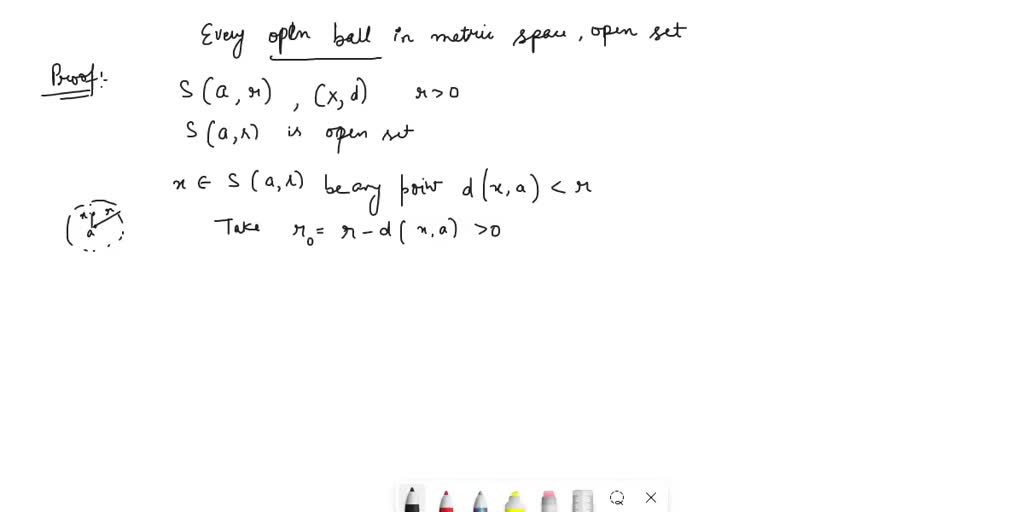 Every open ball in metric space, open set
Proof:-
S(a, r), (X, d) r>0
S(a, r) is open set
x ∈ S(a, r) be any point d(x, a) < r
x r
a
Take r₀ = r - d(x, a) >0